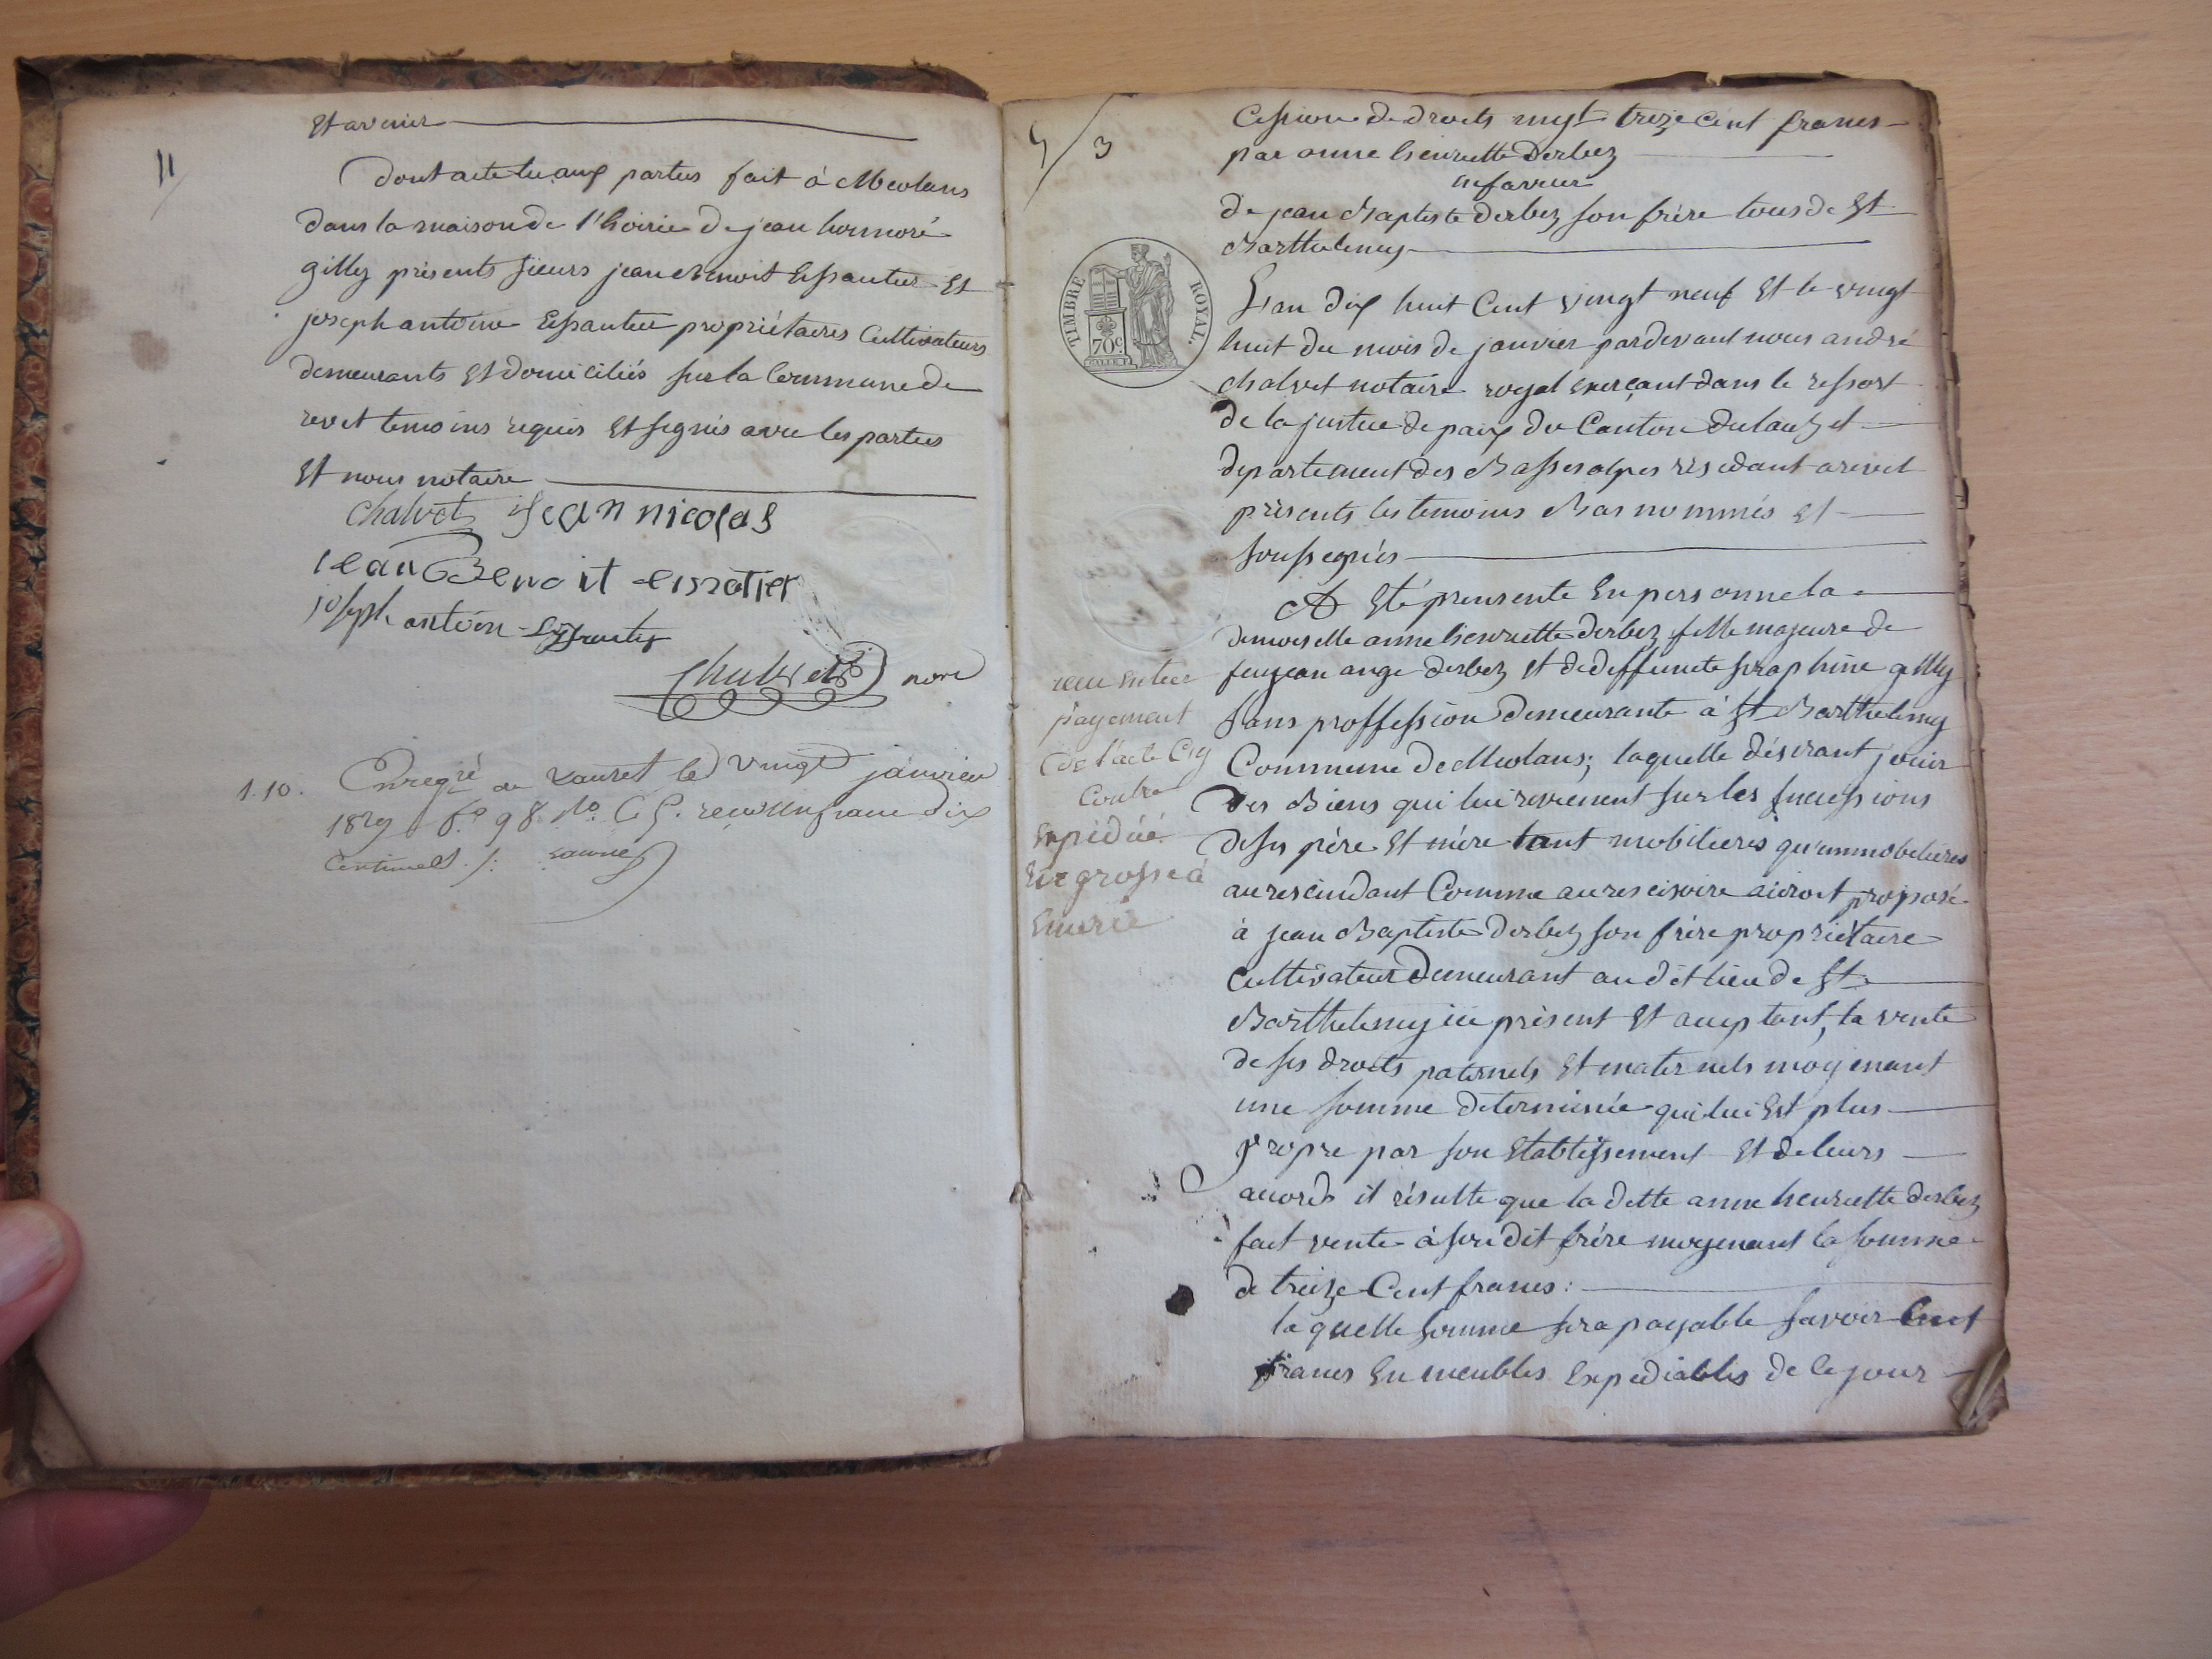 Et avenir
11
Dont acte lu aux parties fait à Meolans
dans la maison de l'hoirie de jean honnoré
gilly présents sieurs jean Benoit Eissautier Et
joseph antoine Eissautier propriétaires Cultivateurs
demeurants Et domiciliés sur la Commune de
revel temoins requis Et signés avec les parties
Et nous notaire
Chalvet jean nicolas
jean Benoit eissotier
joseph antoin Eissautier
Chalvet nore
1.10. Enregré au Lauzet le vingt janvier
1829 fo 98 Vo C 5. recu un franc dix
Centimes ./.
5/3
Cession de droits mynt treize Cent francs
par anne henriette Derbez
en faveur
de jean Baptiste Derbez son frère tous de St
Barthelemy
TIMBRE ROYAL.
70c
L'an dix huit Cent vingt neuf Et le vingt
huit du mois de janvier pardevant nous andré
chalvet notaire royal exerçant dans le ressort
de la justice de paix du Canton du lauzet
departement des Basses alpes résidant a revel
présents les temoins Bas nommés Et
soussegnés
A Eté preusente En personne la
demoiselle anne henriette Derbez fille majeure de
feu jean ange Derbez Et de deffuncte seraphine gilly
sans proffession Demeurante à St Barthelemy
Commune de Meolans; laquelle désirant jouir
Des Biens qui lui reviennent sur les successions
de ses père Et mère tant mobilieres qu'immobilières
au rescindant Comme au rescisoire auroit proposé
à jean Baptiste Derbez son frère propriétaire
Cultivateur Demeurant au dit lieu de St
Barthelemy ici présent Et acceptant, la vente
de ses droits paternels Et maternels moyenant
une somme determinée qui lui Est plus
propre par son Etablissement Et de leurs
accords il résulte que la ditte anne henriette derbez
fait vente à son dit frère moyenant la somme
de treize Cent francs:
la quelle somme sera payable savoir Cent
francs En meubles Expediables de ce jour
payement
de l'acte Cy
Contre
Expédié
En grosse à